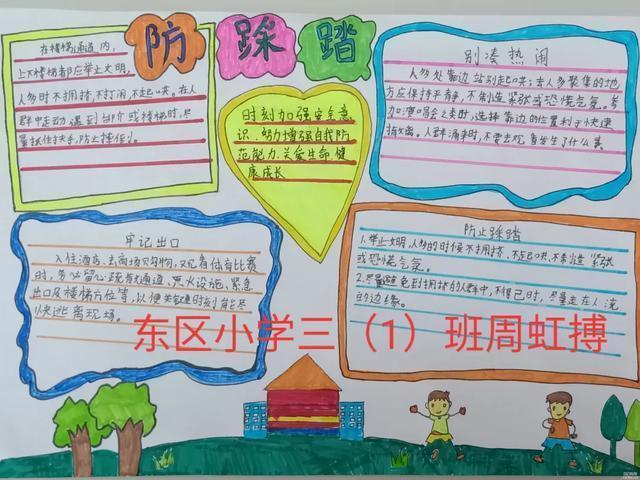 防踩踏
在楼梯通道内,
上下楼梯都应举止文明,
人多时不拥挤,不打闹,不起哄。在人
群中走动遇到台阶或楼梯时,尽
量抓住扶手,防止摔倒。
时刻加强安全意
识,努力增强自我防
范能力,关爱生命,健
康成长
别凑热闹
人多处靠边站别起哄;去人多聚集的地
方应保持平静,不制造紧张或恐慌气氛。参
加演唱会之类时,选择靠边的位置利于快速
拥离。人群涌来时,不要去观看发生了什么事
牢记出口
入住酒店,去商场购物,又或有体育比赛
时,务必留心疏散通道,灭火设施,紧急
出口及楼梯方位等,以便关键时刻能尽
快逃离现场。
防止踩踏
1.举止文明,人多的时候不拥挤,不起哄,不制造紧张
或恐慌气氛。
2.尽量避免到拥挤的人群中,不得已时,尽量走在人流
的边缘。
东区小学三(1)班周虹搏